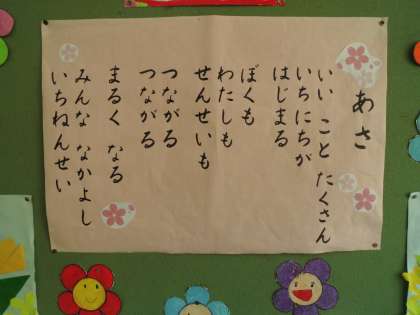 あさ
いい こと たくさん
いちにちが
はじまる
ぼくも
わたしも
せんせいも
つながる
つながる
まるく なる
みんな なかよし
いちねんせい